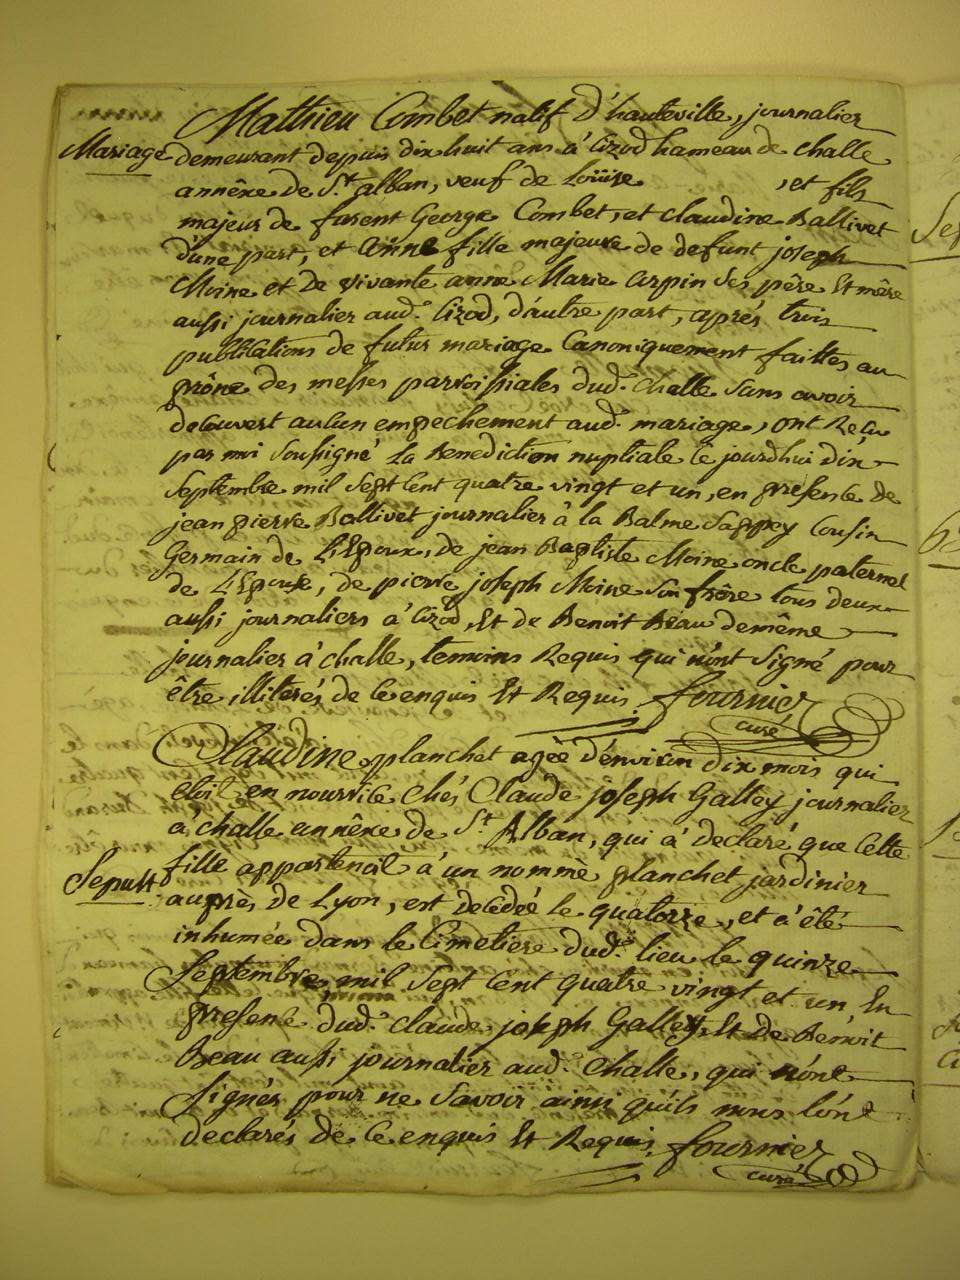 Mathieu Combet natif d'hauteville, journalier
Mariage demeurant depuis dix huit ans à Cizod hameau de challe
annêxe de St. alban, veuf de Loüise , et fils
majeur de furent George Combet, et claudine Ballivet
d'une part, et anne fille majeure de defunt joseph
Moine et de vivante anne Marie arpin ses père et mère
aussi journalier aud. Cizod, d'autre part, après trois
publications de futur mariage Canoniquement faittes au
prône des messes parroissiales dud. challe sans avoir
decouvert aucun empechement aud. mariage, ont Recu
par moi soussigné la Benediction nuptiale ce jourdhui dix
septembre mil sept cent quatre vingt et un, en presence de
jean pierre Ballivet journalier à la Balme Sappey Cousin
Germain de L'Epoux, de jean Baptiste Moine oncle paternel
de L'Epouse, de pierre joseph Moine son frère tous deux
aussi journaliers à Cizod, et de Benoit Beau demême
journalier à challe, temoins Requis qui n'ont signé pour
être illiterés de ce enquis et Requis. fournier
curé
Claudine planchet agée d'environ dix mois qui
etoit en nourrice chés Claude joseph Galley journalier
à challe annêxe de St. Alban, qui a declaré que cette
Sepult fille appartenoit à un nommé planchet jardinier
auprès de Lyon, est decedée le quatorze, et a été
inhumée dans le Cimetiere dud. lieu le quinze
Septembre mil sept cent quatre vingt et un, en
presence dud. claude joseph Galley, et de Benoit
Beau aussi journalier aud. challe, qui n'ont
signés pour ne savoir ainsi qu'ils nous l'ont
declarés de ce enquis et Requis. fournier
curé